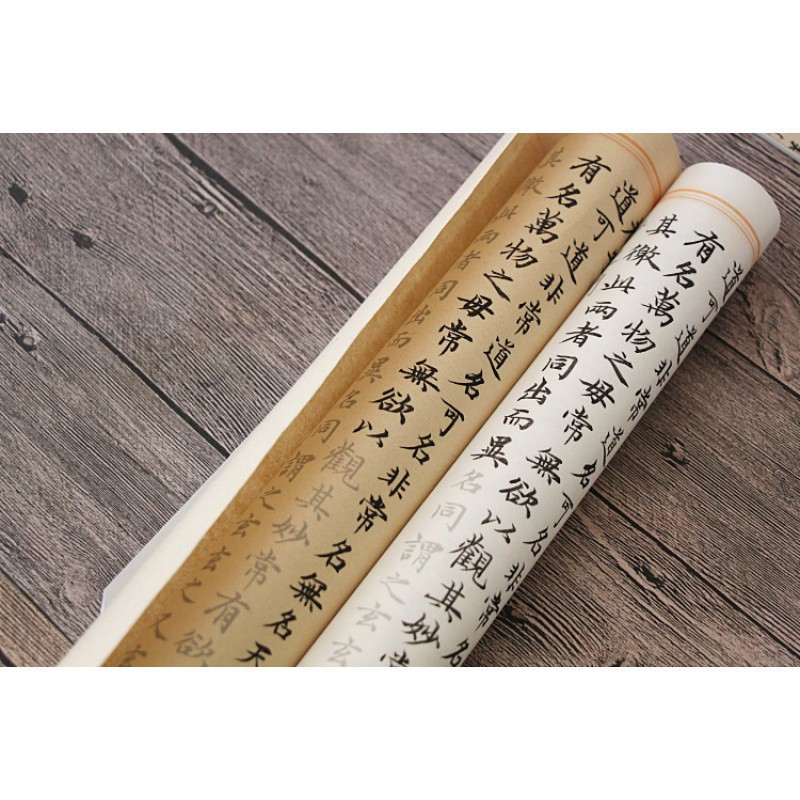 道可道非常道名可名非常名無名天
有名萬物之母常無欲以觀其妙常有欲
其徼此兩者同出而異名同謂之玄玄之又玄
道可道非常道名可名非常名
有名萬物之母常無欲以觀其妙常
其徼此兩者同出而異名同謂之玄玄